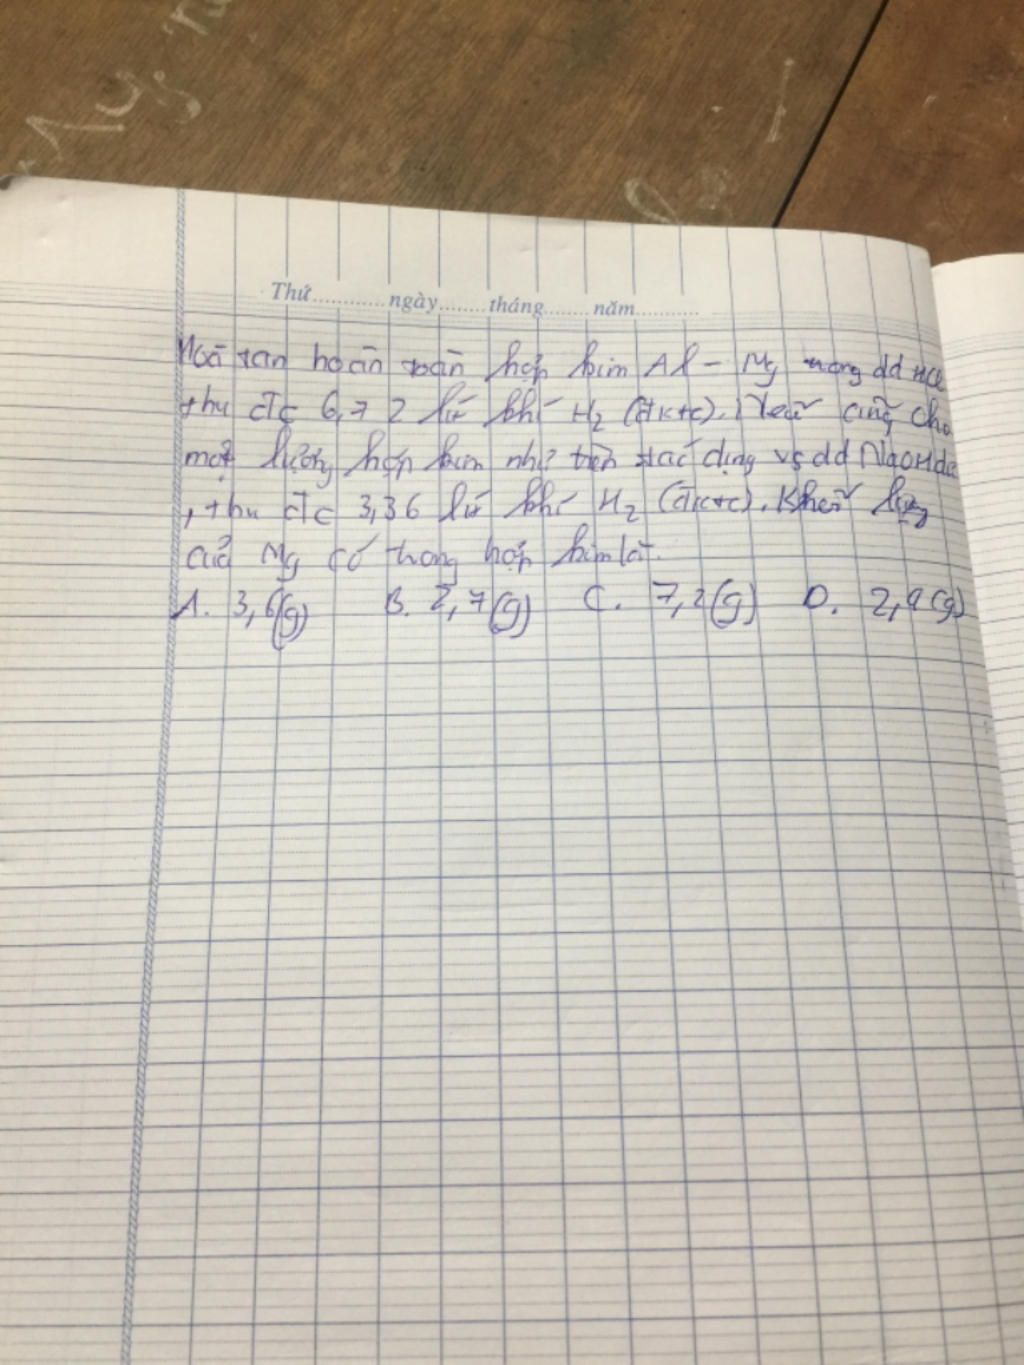 Thứ............ngày........tháng........năm...........
Hoà tan hoàn toàn hợp kim Al – Mg trong dd HCl
, thu đc 6,72 lít khí H2 (đktc). Nếu cũng cho
một lượng hợp kim như trên tác dụng vs dd NaOH dư
, thu đc 3,36 lít khí H2 (đktc). Khối lượng
của Mg có trong hợp kim là:
A. 3,6(g) B. 2,7(g) C. 7,2(g) D. 2,9(g)